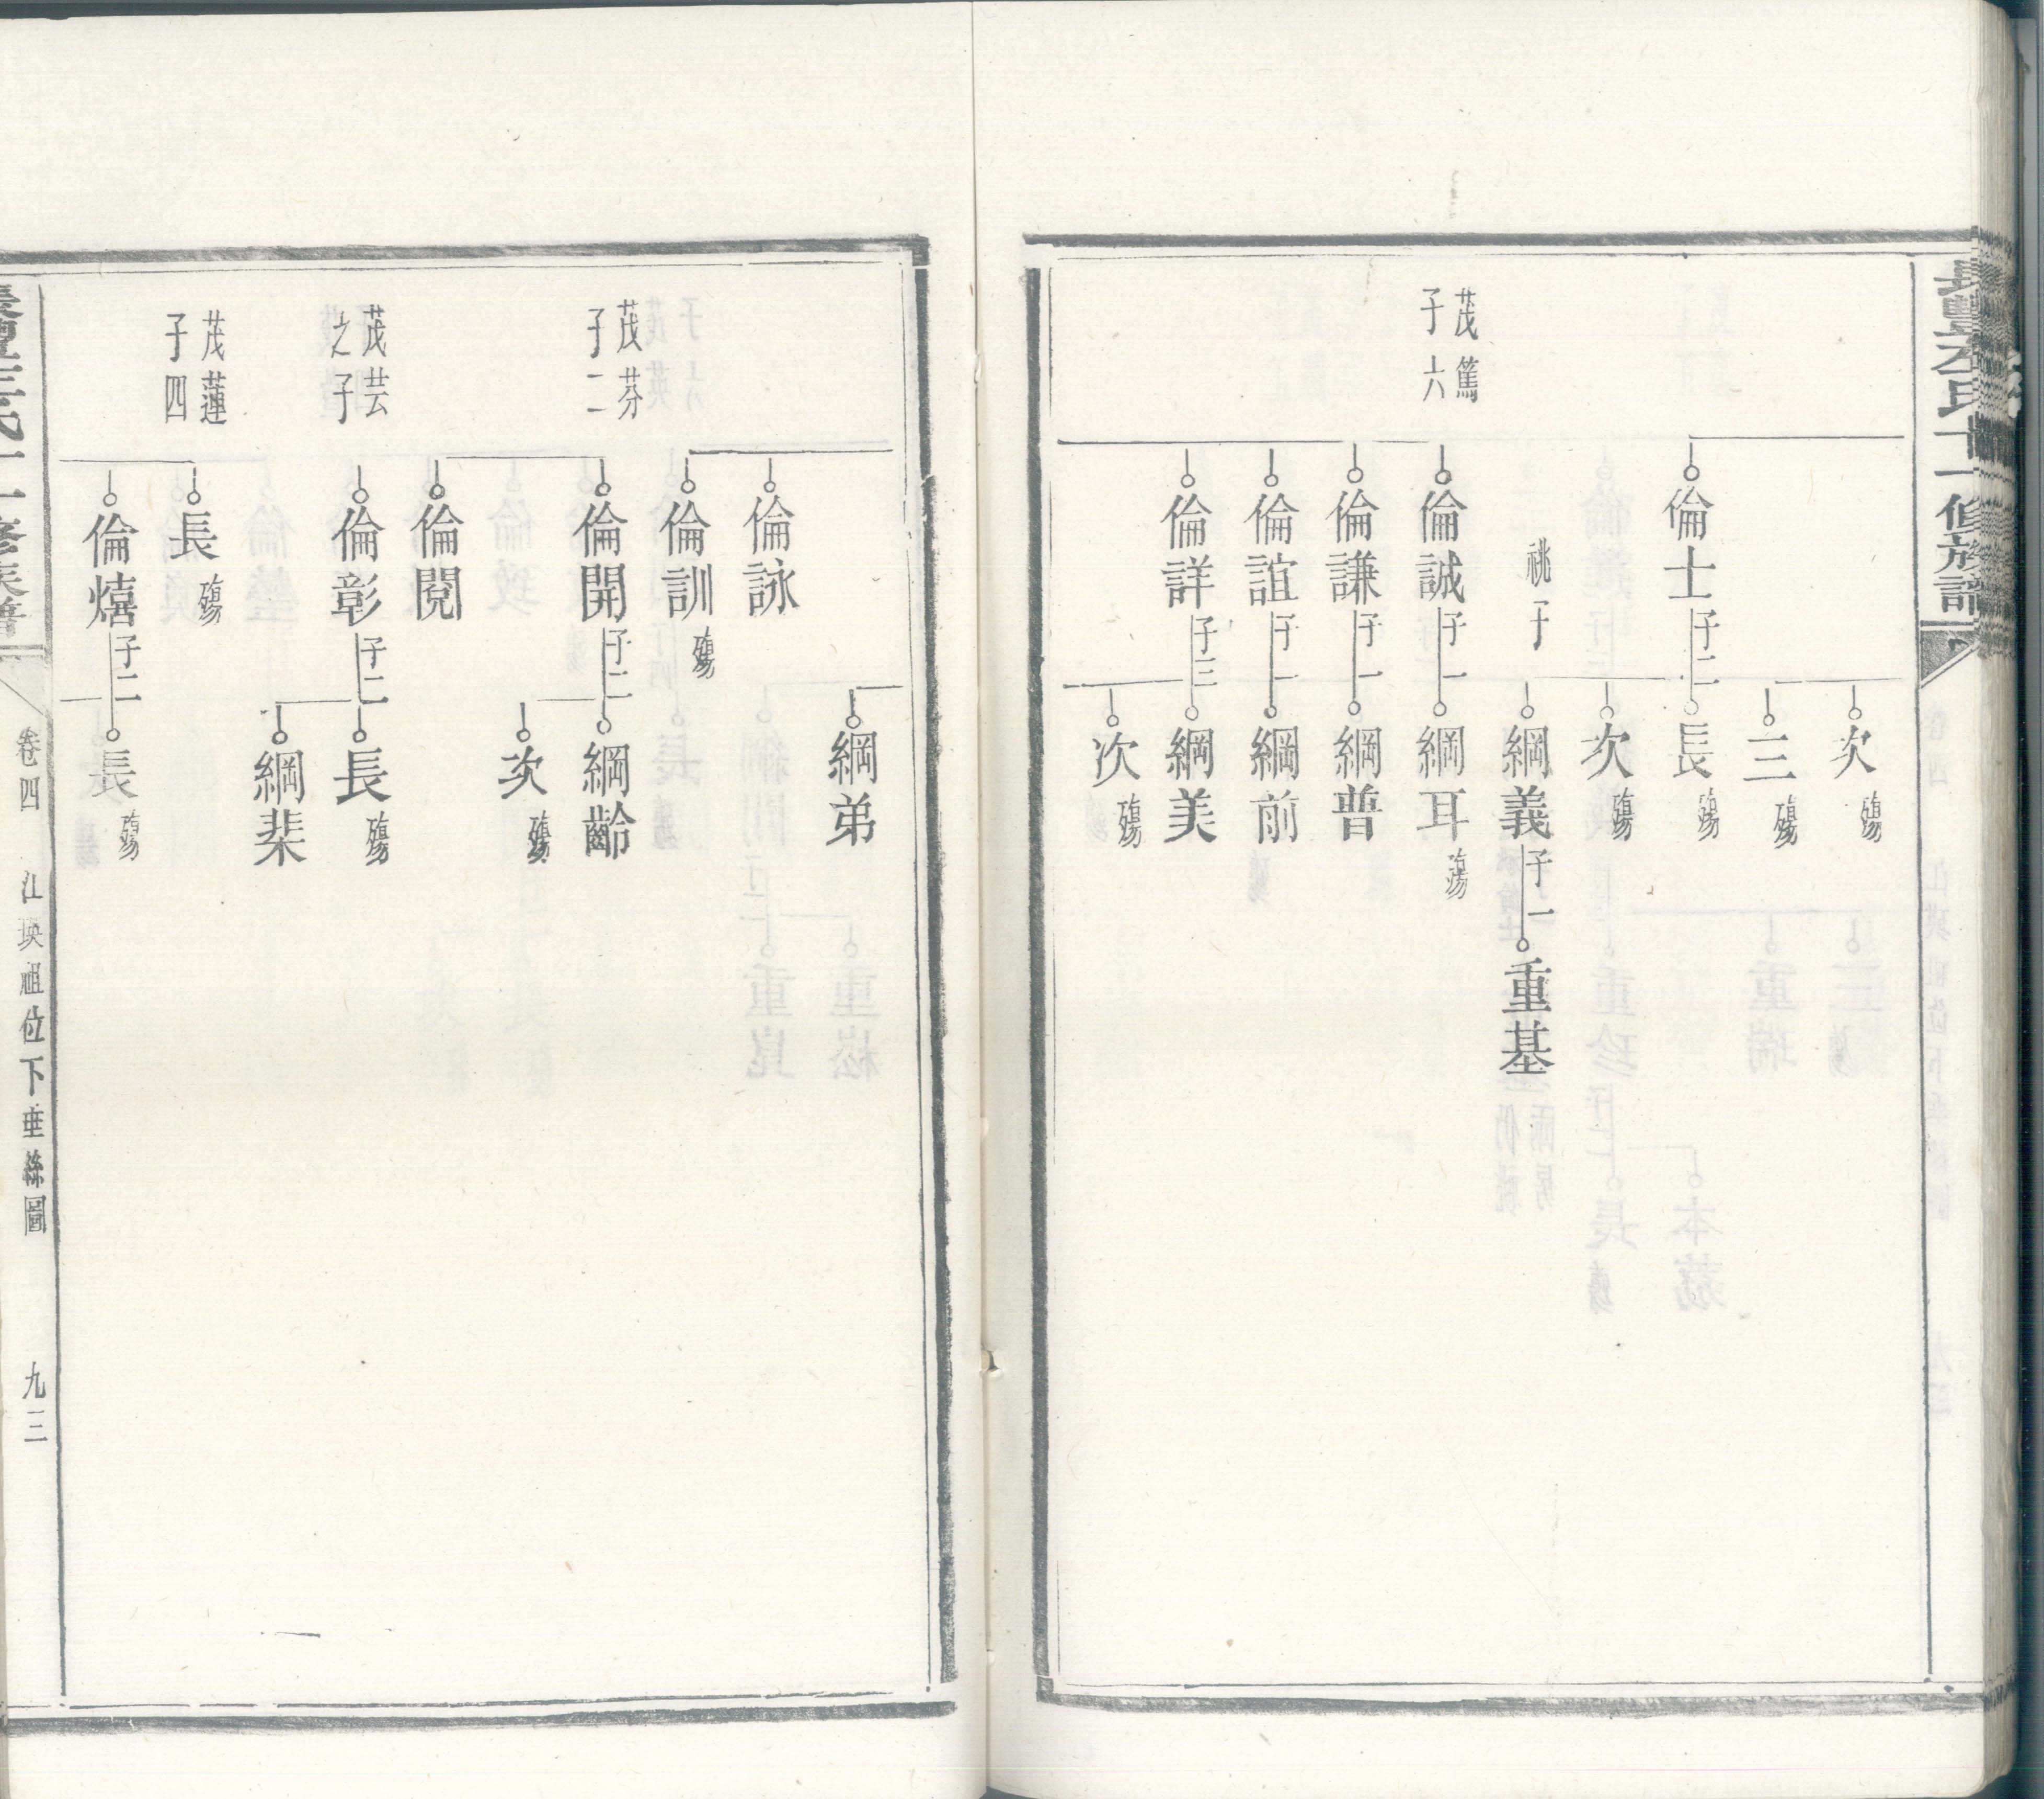 次 殤
三 殤
倫士 子二
長 殤
次 殤
祧子
綱義 子一
重基
茂篤
子六
倫誠 子一
綱耳 殤
倫謙 子一
綱普
倫誼 子一
綱前
倫詳 子三
綱美
次 殤
綱弟
倫詠
倫訓 殤
茂芬
子二
倫開 子二
綱齡
次 殤
倫閱
茂芸
之子
倫彰 子二
長 殤
綱棐
茂蓮
子四
長 殤
倫熺 子二
長 殤
卷四
江璵祖位下垂絲圖
九三